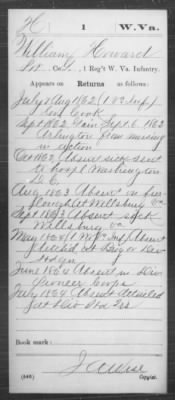 H 1 W.Va.
William Howard
Pvt., Co. , 1 Reg't W. Va. Infantry.
Appears on Returns as follows:
July & Aug 1862
Cook
Sept 1862 Since Sept. 6, 1862
Arlington missing
in action
Oct 1862, Absent sick sent
to hospl Washington
D.C.
Aug 1863 Absent on fur-
lough at Wellsburg
Sept 1863 Absent sick
Wellsburg
May 1864 Absent
June 1864 Absent in Div
Pioneer Corps
July 1864 Absent detailed
at Div
Book mark:
J A Wise
(546) Copyist.